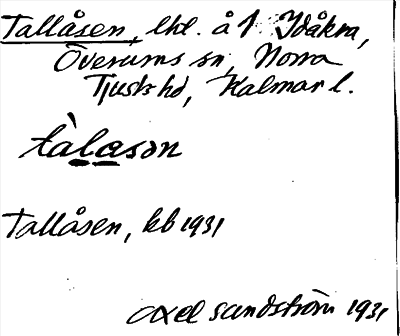 Tallåsen, lhl. å 1 Idåkra,
Överums sn, Norra
Tjusts hd, Kalmar l.
tàlasən
Tallåsen, kb 1931
Axel Sandström 1931